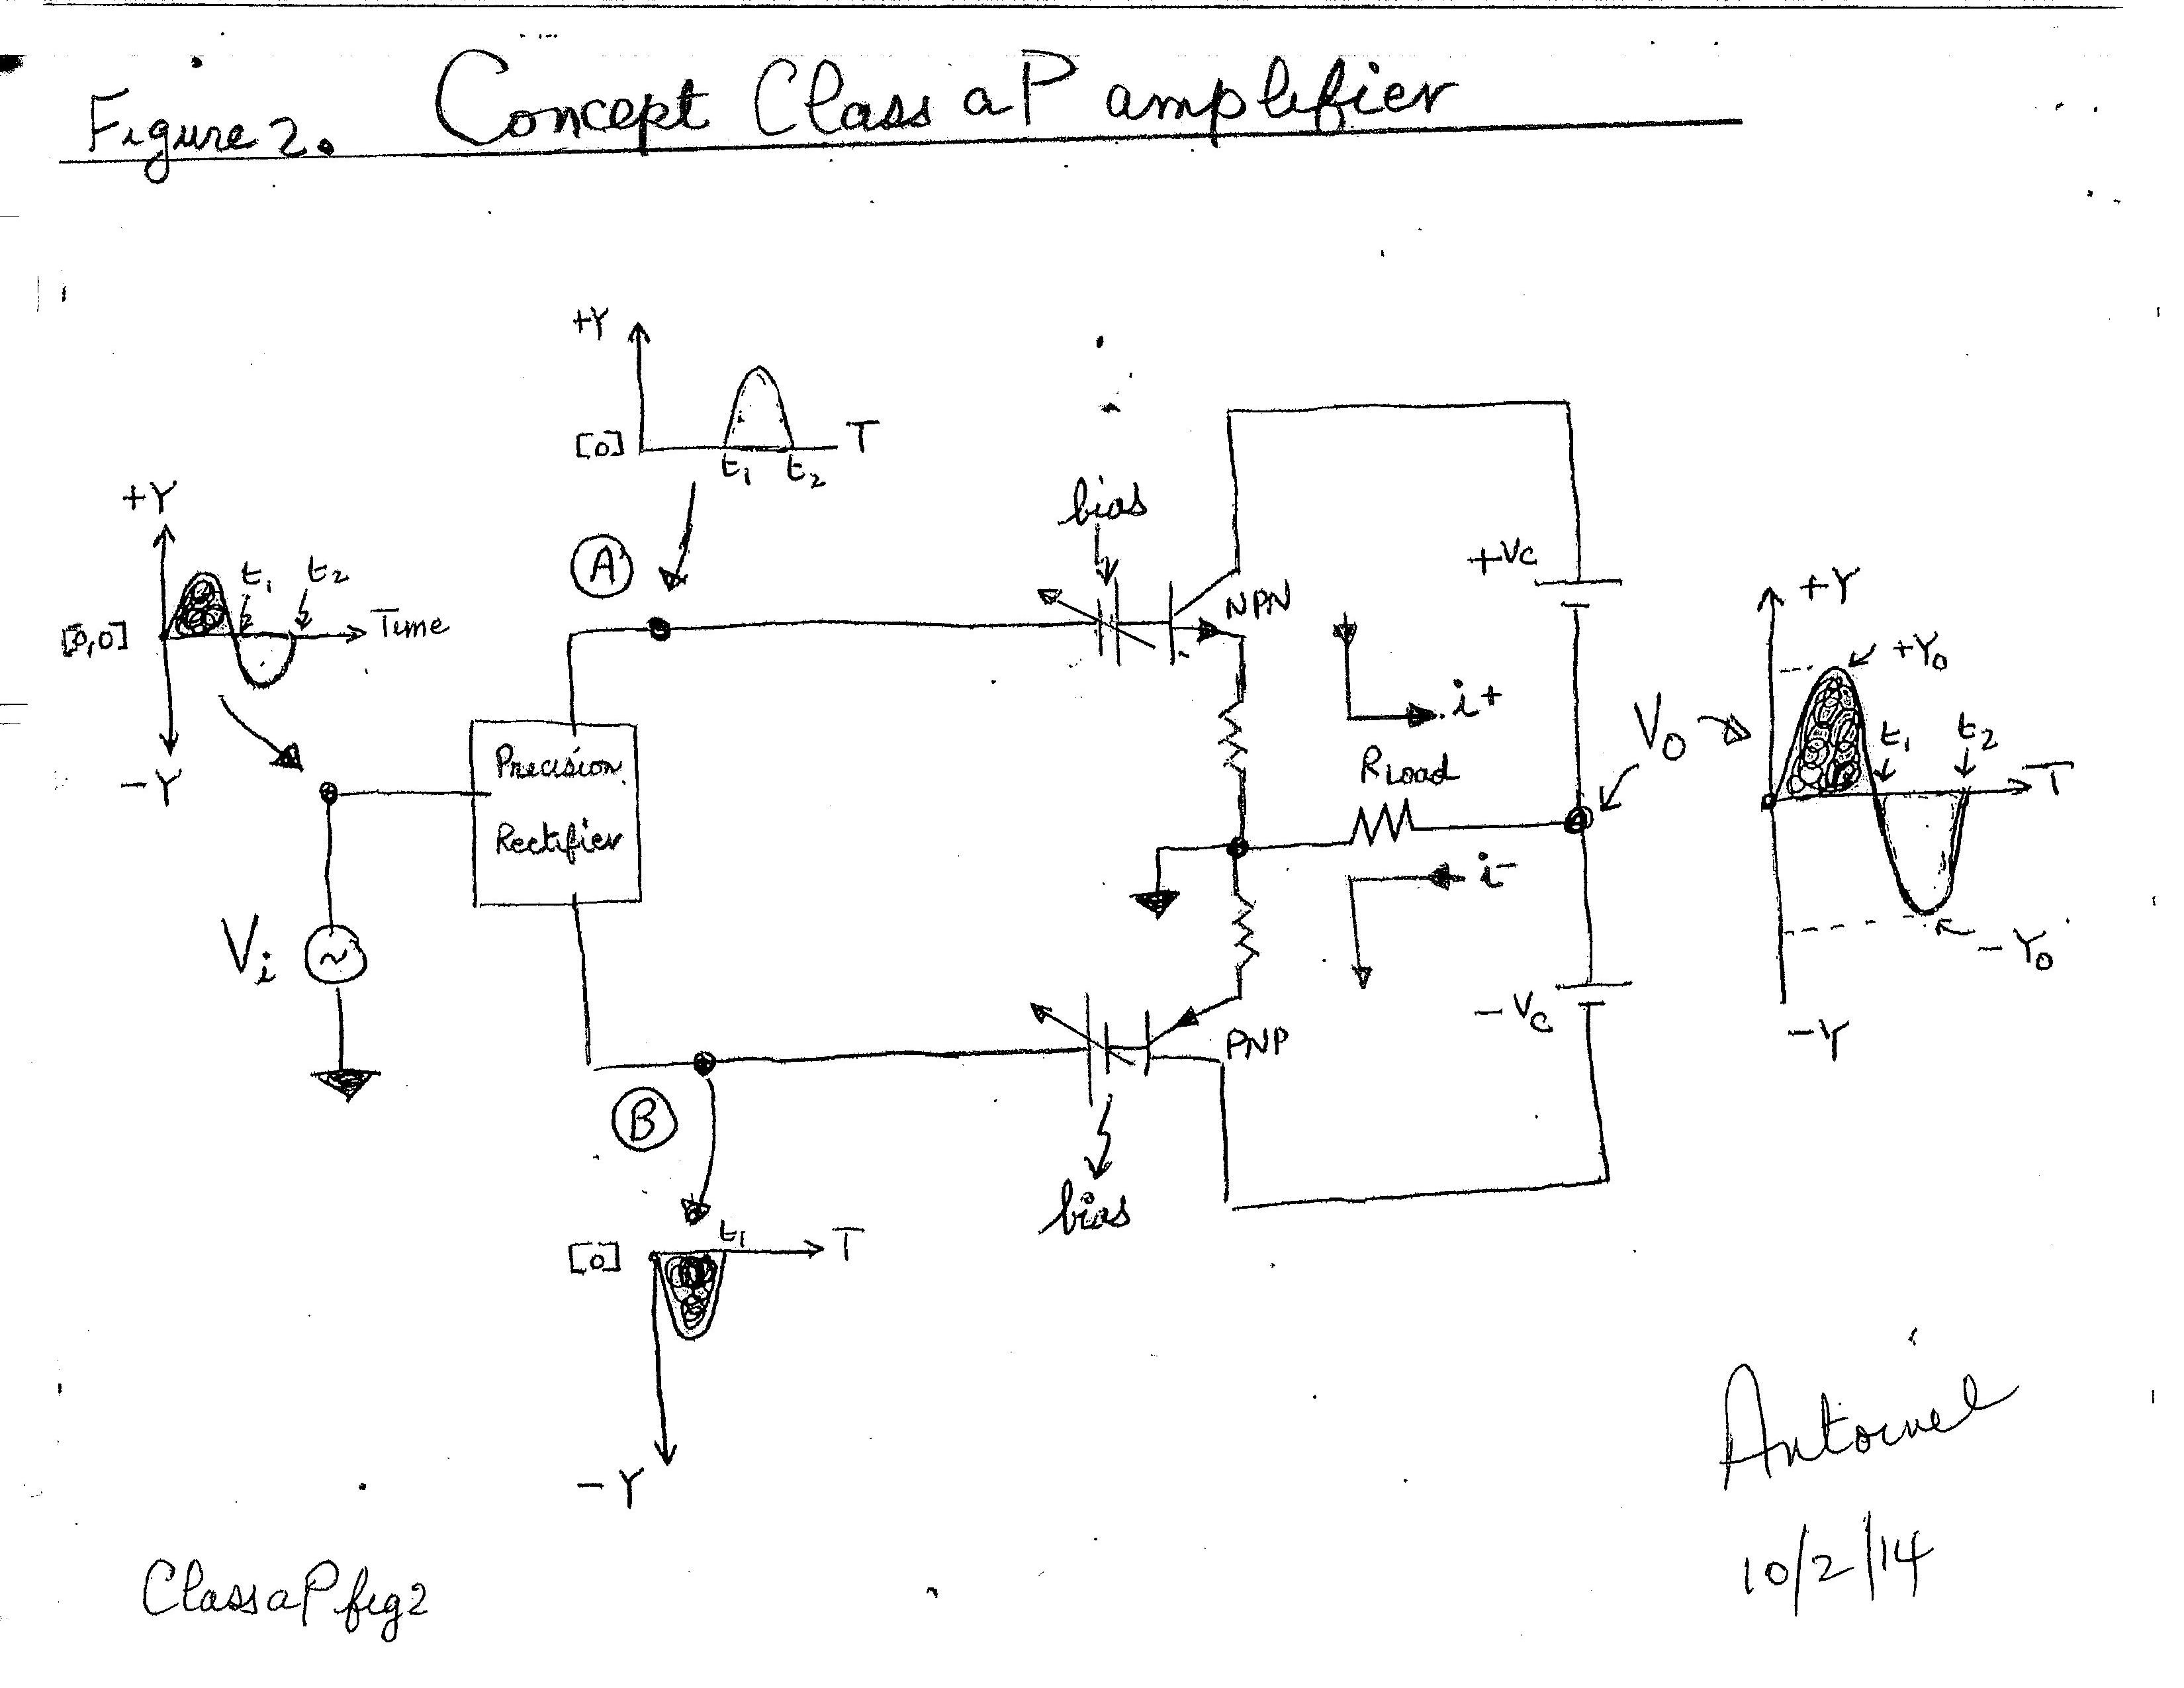 Figure 2. Concept Class aP amplifier
+Y
[0]
T
t1
t2
+Y
t1
t2
Time
[0,0]
-Y
A
bias
NPN
+Vc
i+
Precision
Rectifier
RLoad
Vo
+Y
+Yo
t1
t2
T
-Yo
-Y
Vi
i-
-Vc
PNP
B
bias
t1
[0]
T
-Y
10/2/14
ClassaPfig2